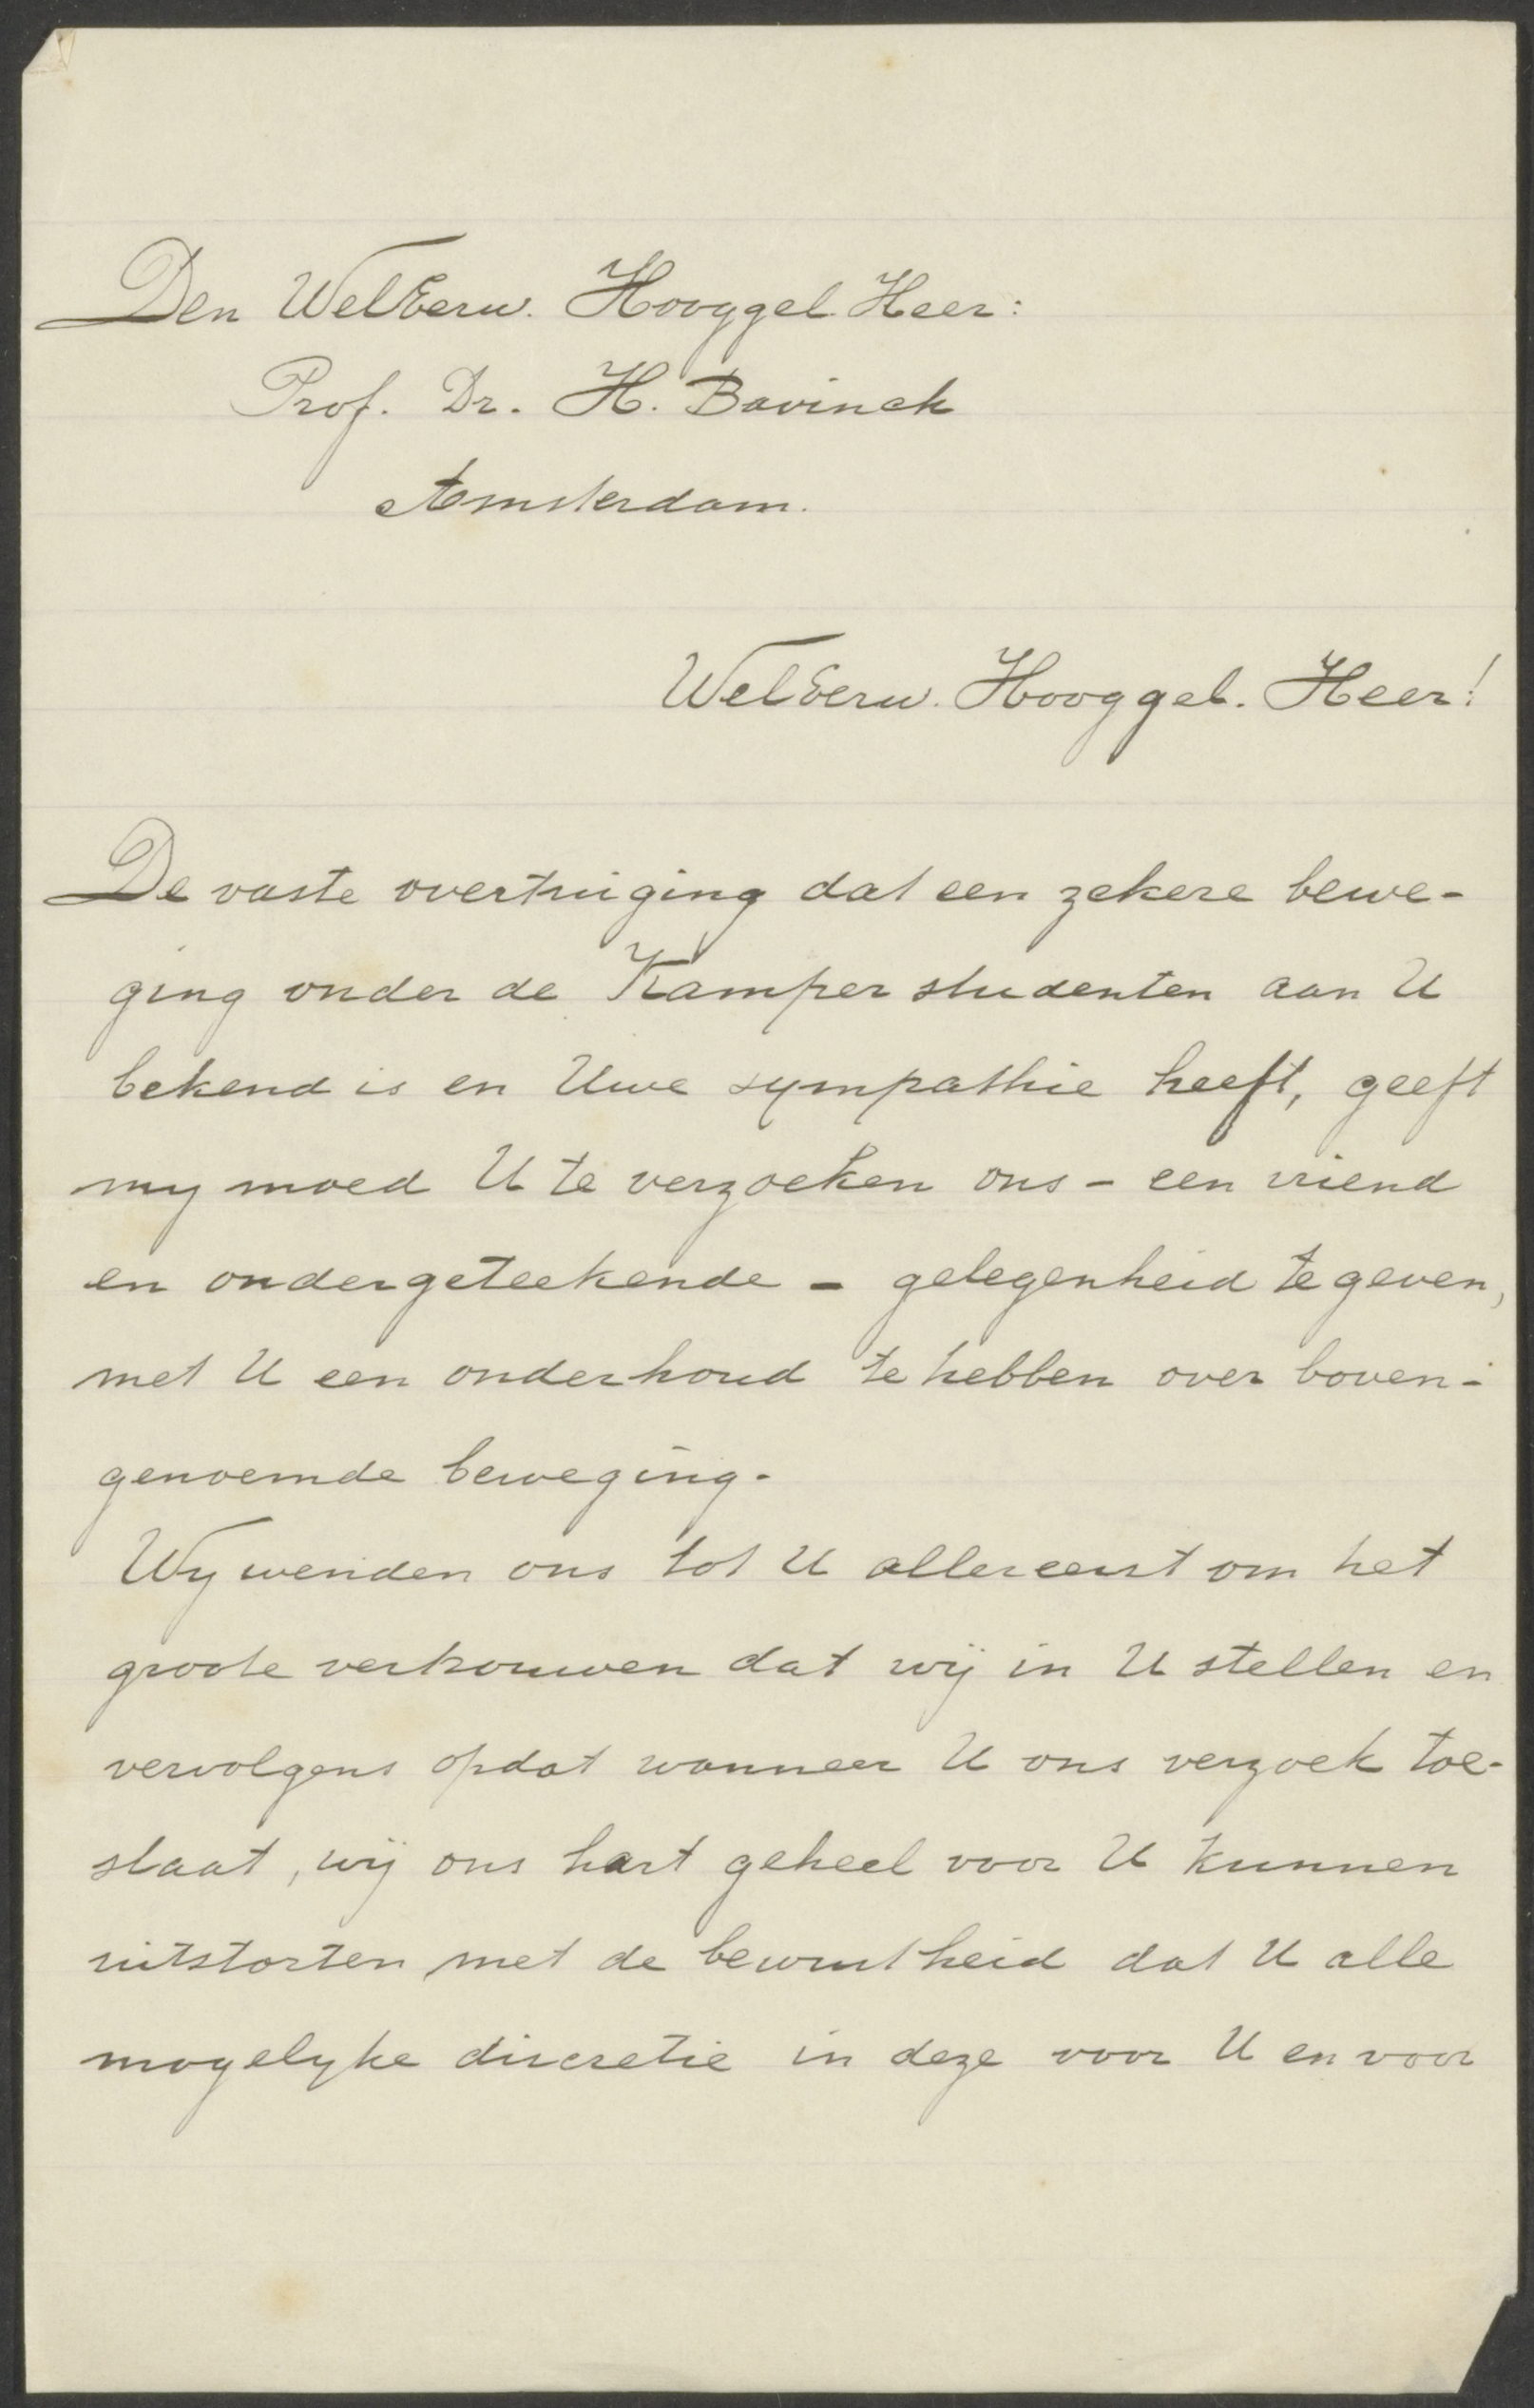 Den WelEerw. Hooggel. Heer:
Prof. Dr. H. Bavinck
Amsterdam.
WelEerw. Hooggel. Heer!
De vaste overtuiging dat een zekere bewe-
ging onder de Kamper studenten aan U
bekend is en Uwe sympathie heeft, geeft
my moed U te verzoeken ons - een vriend
en ondergeteekende - gelegenheid te geven,
met U een onderhoud te hebben over boven-
genoemde beweging.
Wy wenden ons tot U allereerst om het
groote vertrouwen dat wij in U stellen en
vervolgens opdat wanneer U ons verzoek toe-
staat, wij ons hart geheel voor U kunnen
uitstorten met de bewustheid dat U alle
mogelyke discretie in deze voor U en voor